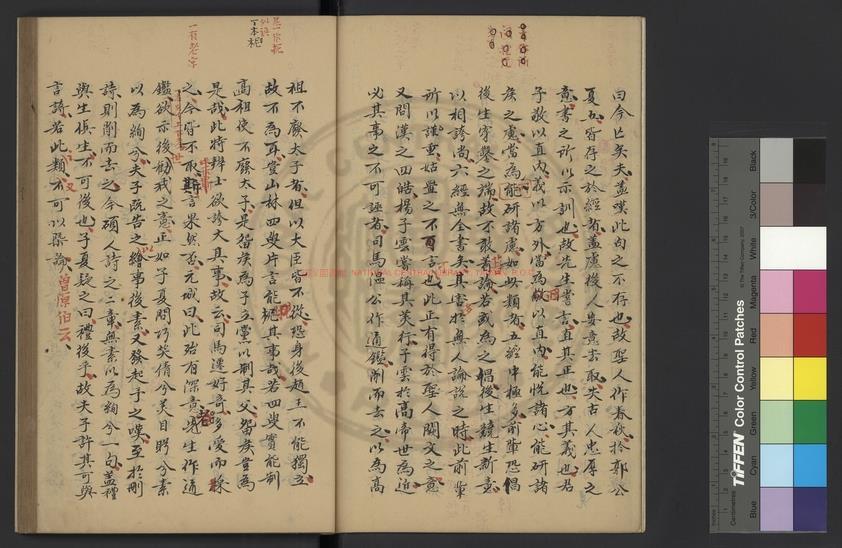 曰今亡矣夫蓋嘆此句之不存也故聖人作春秋於郭公
夏五皆存之於經者蓋慮後人妄意去取失古人忠厚之
意書之所以示訓也故先生嘗言直其正也方其義也君
子敬以直內義以方外當為敬以直內能悦諸心能研諸
侯之慮當為能研諸慮如此類者五經中極多前輩恐倡
後生穿鑿之端故不敢著論若或為之倡後生競生新意
以相誇尚六經無全書矣其害於無人論說之時此前輩
所以謹重姑置之不言也此正有得於聖人闕文之意
又問漢之四皓楊子雲嘗稱其美行子雲於高帝世為近
必其事之不可誣者司馬溫公作通鑑削而去之以為高
祖不廢太子者但以大臣皆不從恐身後趙王不能獨立
故不為耳豈山林四叟片言能柅其事哉若四叟實能制
高祖使不廢太子是留侯為子立黨以制其父留侯豈為
是哉此特辨士欲誇大其事故云司馬遷好奇多愛而採
之今皆不取其言果然否元城曰此殆有深意老先生作通
鑑欲示後勸戒之意正如子夏問巧笑倩兮美目盼兮素
以為絢兮夫子既告之以繪事後素又發起予之嘆至於刪
詩則削而去之今碩人詩之二章無素以為絢兮一句蓋禮
與生俱生不可後也子夏疑之曰禮後乎故夫子許其可與
言詩若此類又不可以槩論
曾原伯云
一有老字
丁本柅
NATIONAL CENTRAL LIBRARY
TIFFEN Color Control Patches
© The Tiffen Company, 2007
Centimetres
Inches
Blue
Cyan
Green
Yellow
Red
Magenta
White
3/Color
Black